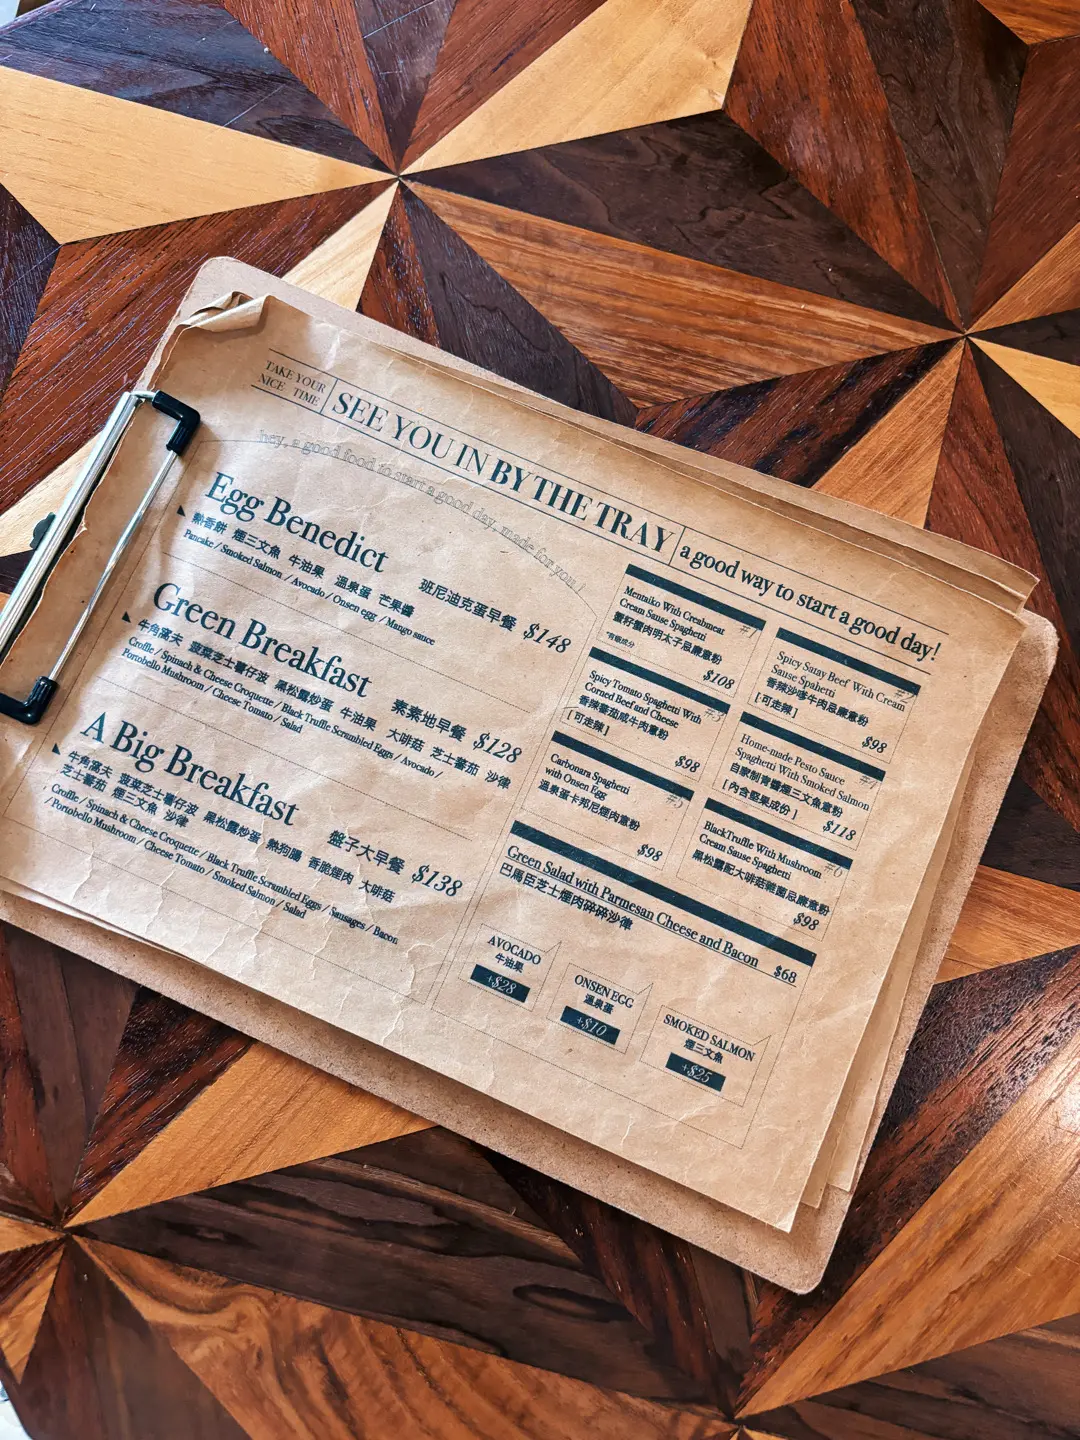 TAKE YOUR
NICE TIME
SEE YOU IN BY THE TRAY
a good way to start a good day!
hey, a good food to start a good day, made for you !
Egg Benedict
班尼迪克蛋早餐 $148
熱香餅 煙三文魚 牛油果 溫泉蛋 芒果醬
Pancake / Smoked Salmon / Avocado / Onsen egg / Mango sauce
Green Breakfast
素素地早餐 $128
牛角窩夫 菠菜芝士薯仔波 黑松露炒蛋 牛油果 大啡菇 芝士蕃茄 沙律
Croffle / Spinach & Cheese Croquette / Black Truffle Scrambled Eggs / Avocado /
Portobello Mushroom / Cheese Tomato / Salad
A Big Breakfast
盤子大早餐 $138
牛角窩夫 菠菜芝士薯仔波 黑松露炒蛋 熱狗腸 香脆煙肉 大啡菇
芝士蕃茄 煙三文魚 沙律
Croffle / Spinach & Cheese Croquette / Black Truffle Scrambled Eggs / Sausages / Bacon
/ Portobello Mushroom / Cheese Tomato / Smoked Salmon / Salad
Mentaiko With Creabmeat #1
Cream Sause Spaghetti
蟹籽蟹肉明太子忌廉意粉
*有蝦成分
$108
Spicy Satay Beef With Cream #2
Sause Spahetti
香辣沙嗲牛肉忌廉意粉
[可走辣]
$98
Spicy Tomato Spaghetti With #3
Corned Beef and Cheese
香辣蕃茄咸牛肉意粉
[可走辣]
$98
Home-made Pesto Sauce #4
Spaghetti With Smoked Salmon
自家制青醬煙三文魚意粉
[內含堅果成份]
$118
Carbonara Spaghetti #5
with Onsen Egg
溫泉蛋卡邦尼煙肉意粉
$98
BlackTruffle With Mushroom #6
Cream Sause Spaghetti
黑松露配大啡菇雜菌忌廉意粉
$98
Green Salad with Parmesan Cheese and Bacon $68
巴馬臣芝士煙肉碎碎沙律
AVOCADO
牛油果
+$28
ONSEN EGG
溫泉蛋
+$10
SMOKED SALMON
煙三文魚
+$25